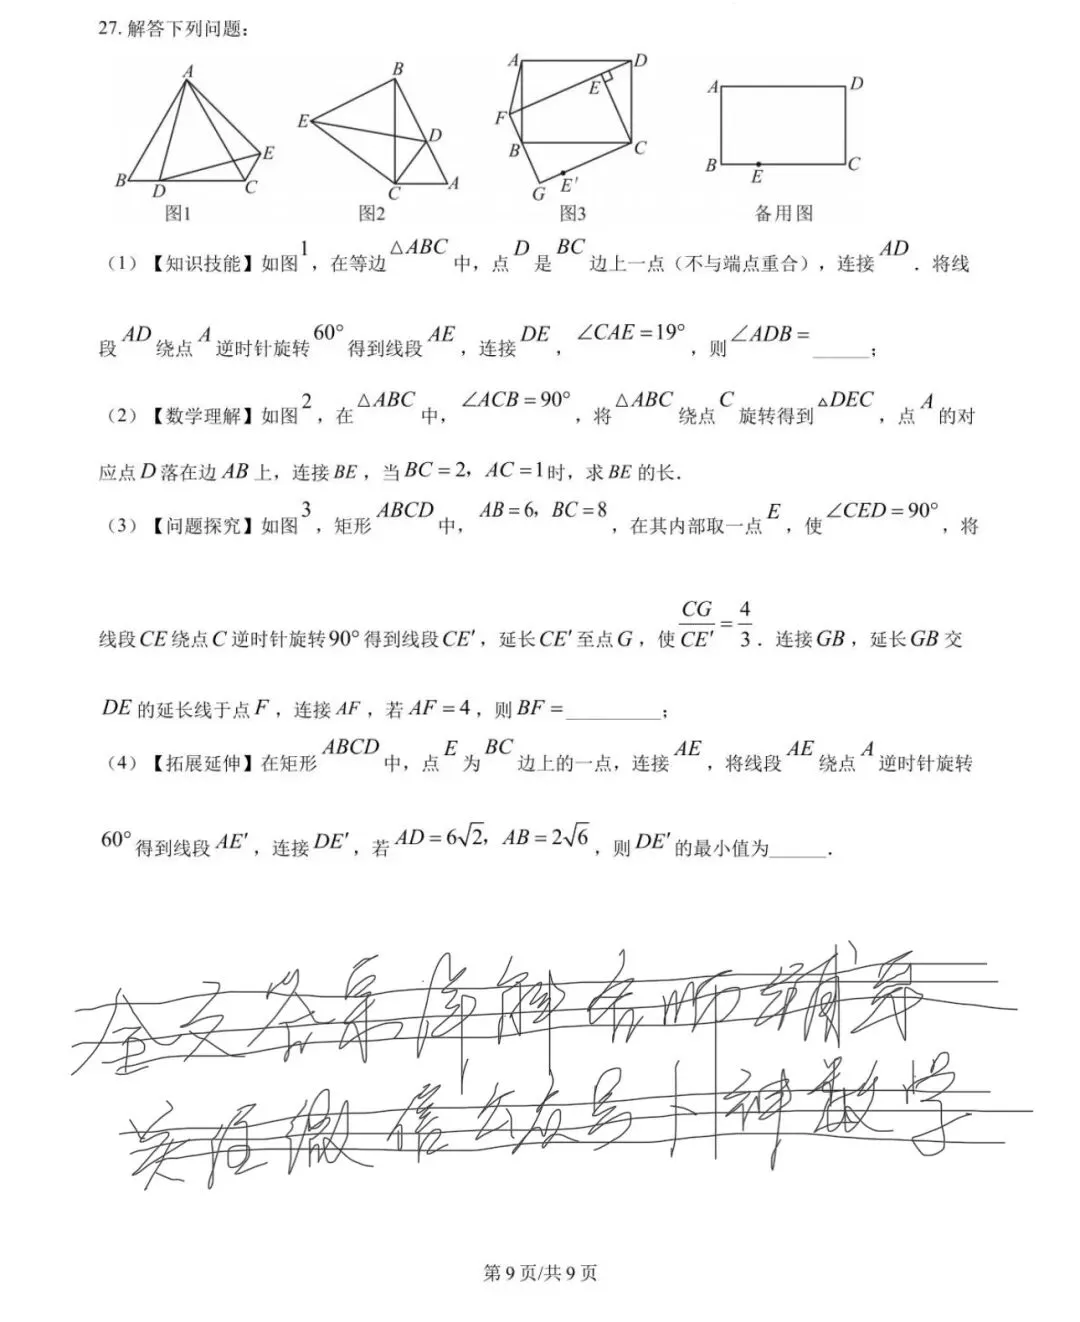 27. 解答下列问题：
A B D C E 图1
B E D C A 图2
A D E F B C G E′ 图3
A D B E C 备用图
（1）【知识技能】如图1，在等边△ABC中，点D是BC边上一点（不与端点重合），连接AD．将线
段AD绕点A逆时针旋转60°得到线段AE，连接DE，∠CAE=19°，则∠ADB=______；
（2）【数学理解】如图2，在△ABC中，∠ACB=90°，将△ABC绕点C旋转得到△DEC，点A的对
应点D落在边AB上，连接BE，当BC=2，AC=1时，求BE的长．
（3）【问题探究】如图3，矩形ABCD中，AB=6，BC=8，在其内部取一点E，使∠CED=90°，将
线段CE绕点C逆时针旋转90°得到线段CE′，延长CE′至点G，使CG/CE′=4/3．连接GB，延长GB交
DE的延长线于点F，连接AF，若AF=4，则BF=__________；
（4）【拓展延伸】在矩形ABCD中，点E为BC边上的一点，连接AE，将线段AE绕点A逆时针旋转
60°得到线段AE′，连接DE′，若AD=6√2，AB=2√6，则DE′的最小值为______．
全文答案详解名师辅导
关注微信公众号：神数学
第9页/共9页